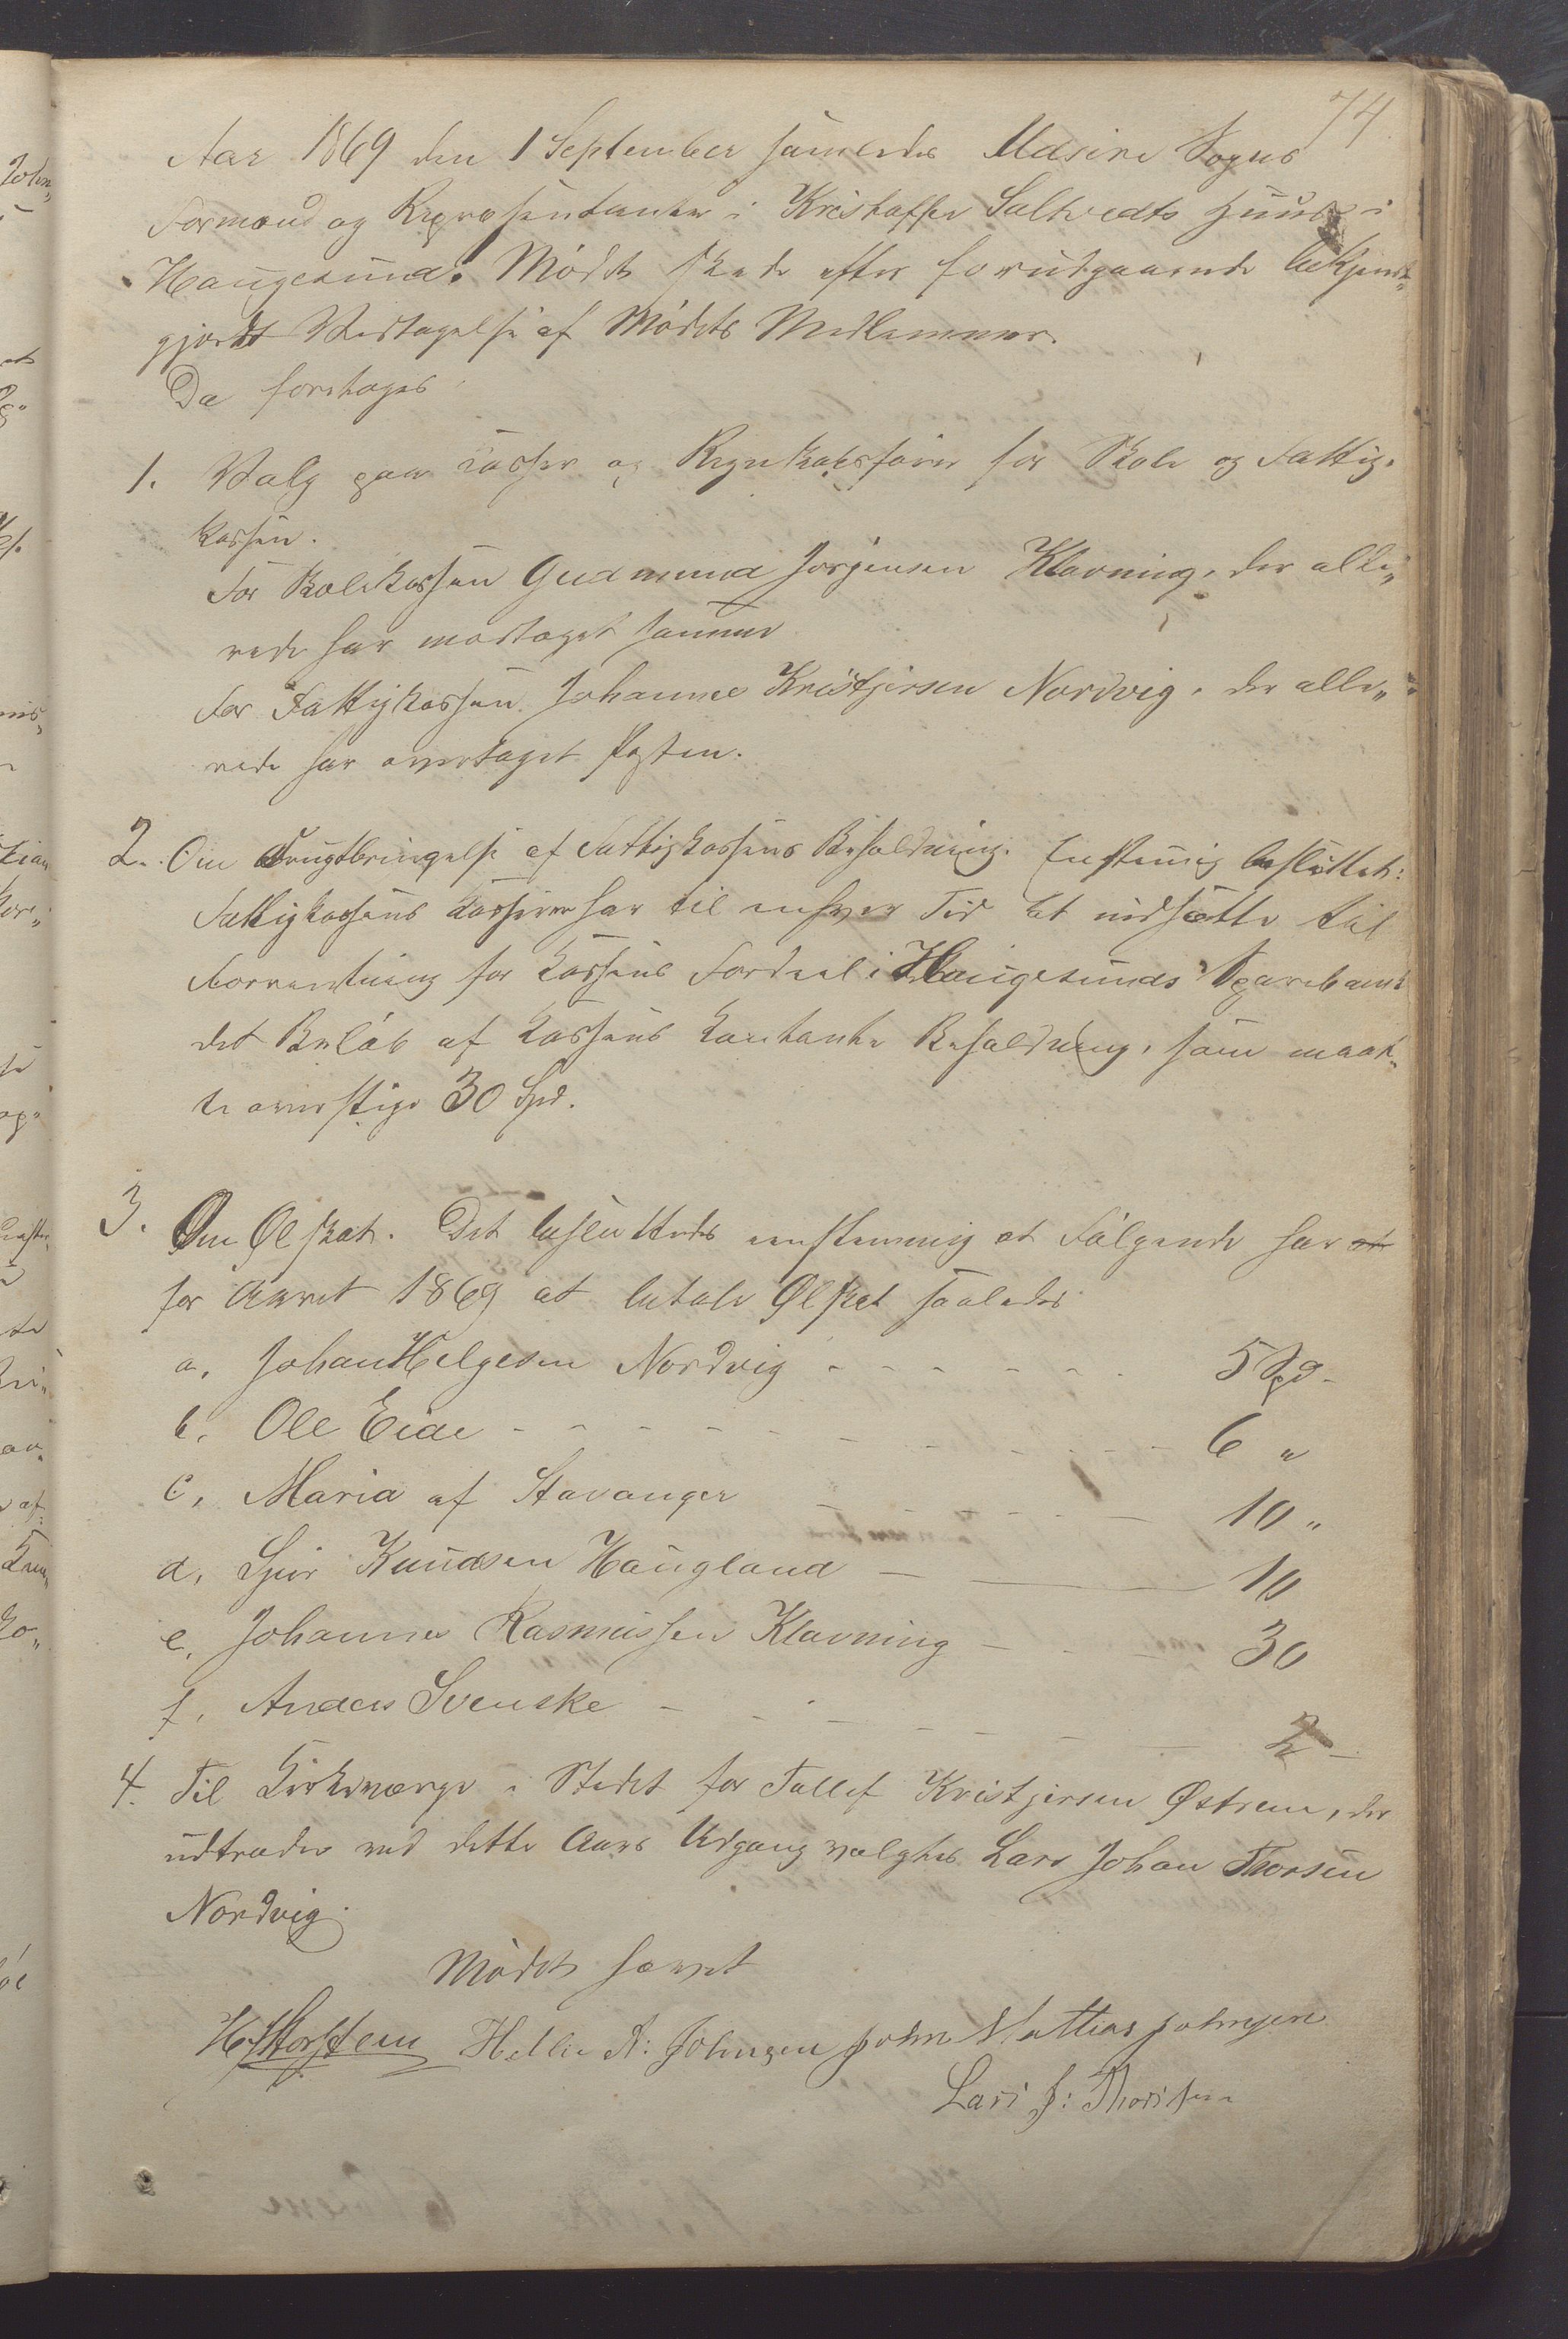 74
Aar 1869 den 1 September samledes Udsire Sogns
Formænd og Repræsentanter i Kristoffer Saltvedts Huus i
Haugesund. Mødet skede efter forudgaaende bekjendt„
gjordt Medlemmer.
Da foretoges
1. Valg paa Kasser og Regnskabsfører for Skole og Fattig„
kassen.
For Skolekassen Gudmund Jørgensen Klovning, der alle„
rede har modtaget samme
For Fattigkassen Johannes Kristjersen Nordvig, der alle„
rede har overtaget Posten.
2. Om Frugtbringelse af Fattigkassens Beholdning. Enstemig besluttet:
Fattigkassens Kasserer har til enhver Tid at indsætte til
Forrentning for Kassens Fordeel i Haugesunds Sparebank
det Beløb af Kassens kontante Beholdning, som maat„
te overstige 30 Spd.
3. Om Ølskat. Det besluttedes eenstemmig at Følgende har at
for Aaret 1869 at betale Ølskat saaledes
a, Johan Helgesen Nordvig - - - - - - 5 Spd-
b. Ole Eide - - - - - - - - - - 6 „
c, Maria af Stavanger - - - - - 10 „
d, Sjur Knudsen Haugland - — 10
e, Johannes Rasmussen Klovning - - - 30
f, Anders Svenske - - - - - - - 2 -
4. Til Kirkeværge i Stedet for Tollef Kristjersen Østrem, der
udtræder ved dette Aars Udgang valgtes Lars Johan Thorsen
Nordvig.
Mødet hævet
H. Storstein Helle A: Johnsen John Mathias Johnsen
Lars J: Thorsen